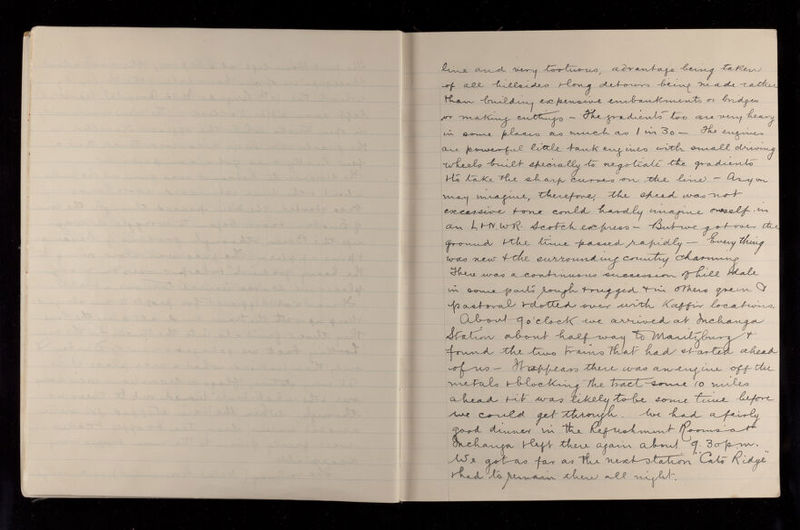 line and very tortuous, advantage being taken
of all hillsides & long detours being made rather
than building expensive embankments or bridges
or making cuttings – The gradients too are very heavy
in some places as much as 1 in 30 – The engines
are powerful little tank engines with small driving
wheels built specially to negotiate the gradients
& to take the sharp curves on the line – As you
may imagine, therefore, the speed was not
excessive & one could hardly imagine oneself in
an L & N.W.R. Scotch express – But we got over the
ground & the time passed rapidly – Every thing
was new & the surrounding country charming
There was a continuous succession of hill & dale
in some parts rough & rugged & in others green &
pastoral & dotted over with Kaffir locations
About 9 o'clock we arrived at Inchanga
Station about half way to Maritzburg &
found the two trains that had started ahead
of us – It appears there was an engine off the
metals & blocking the tract some 10 miles
ahead & it was likely to be some time before
we could get through. We had a fairly
good dinner in the Refreshment Rooms at
Inchanga & left there again about 9.30 pm.
We got as far as the next station "Cato Ridge"
& had to remain there all night.